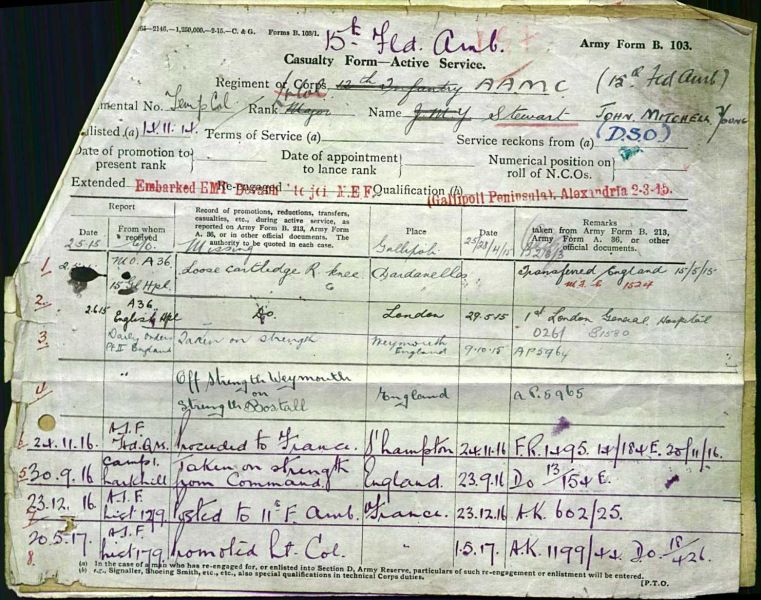 -2146-1,250,000-2-15-C. & G. Forms B. 103/1.
15th Fld. Amb.
Army Form B. 103.
Casualty Form—Active Service.
Regiment or Corps 12th Infantry AAMC (15th Fld Amb)
mental No. Temp Col Rank Major Name J M Y Stewart John Mitchell Young
nlisted (a) Terms of Service (a) Service reckons from (a) (DSO)
Date of promotion to present rank Date of appointment to lance rank Numerical position on roll of N.C.Os.
Extended Re-engaged Qualification (b)
Embarked to join M.E.F. (Gallipoli Peninsula), Alexandria 2-3-15.
Report
Date From whom received
Record of promotions, reductions, transfers, casualties, etc., during active service, as reported on Army Form B. 213, Army Form A. 36, or in other official documents. The authority to be quoted in each case.
Place
Date
Remarks taken from Army Form B. 213, Army Form A. 36, or other official documents.
2.5.15 Missing Gallipoli 25/28/4/15
1 M.O. A36 Loose cartledge R. knee Dardanelles Transferred England 15/5/15
15 Hpl. 1524
2. 2.6.15 A36 English Hpl Do. London 29.5.15 1st London General Hospital
3 Daily orders Pt II England Taken on strength Weymouth England 9.10.15 AP5964
4 " Off strength Weymouth on Strength Bostall England A.P. 5965
24.11.16. A.I.F. Hd.Qrs. Proceeded to France. S'hampton 24.11.16 F.R. 1495. 14/184 E. 20/11/16.
5 30.9.16 Camp 1. Larkhill Taken on strength from Command. England. 23.9.16 Do 13/154 E.
23.12.16 A.I.F. List 129. Posted to 11th F. Amb. France. 23.12.16 A.K. 602/25.
20.5.17. A.I.F. List 179. Promoted Lt. Col. " 1.5.17. A.K. 1199/44 D.O. 18/426.
8.
(a) In the case of a man who has re-engaged for, or enlisted into Section D, Army Reserve, particulars of such re-engagement or enlistment will be entered.
(b) e.g., Signaller, Shoeing Smith, etc., etc., also special qualifications in technical Corps duties.
[P.T.O.